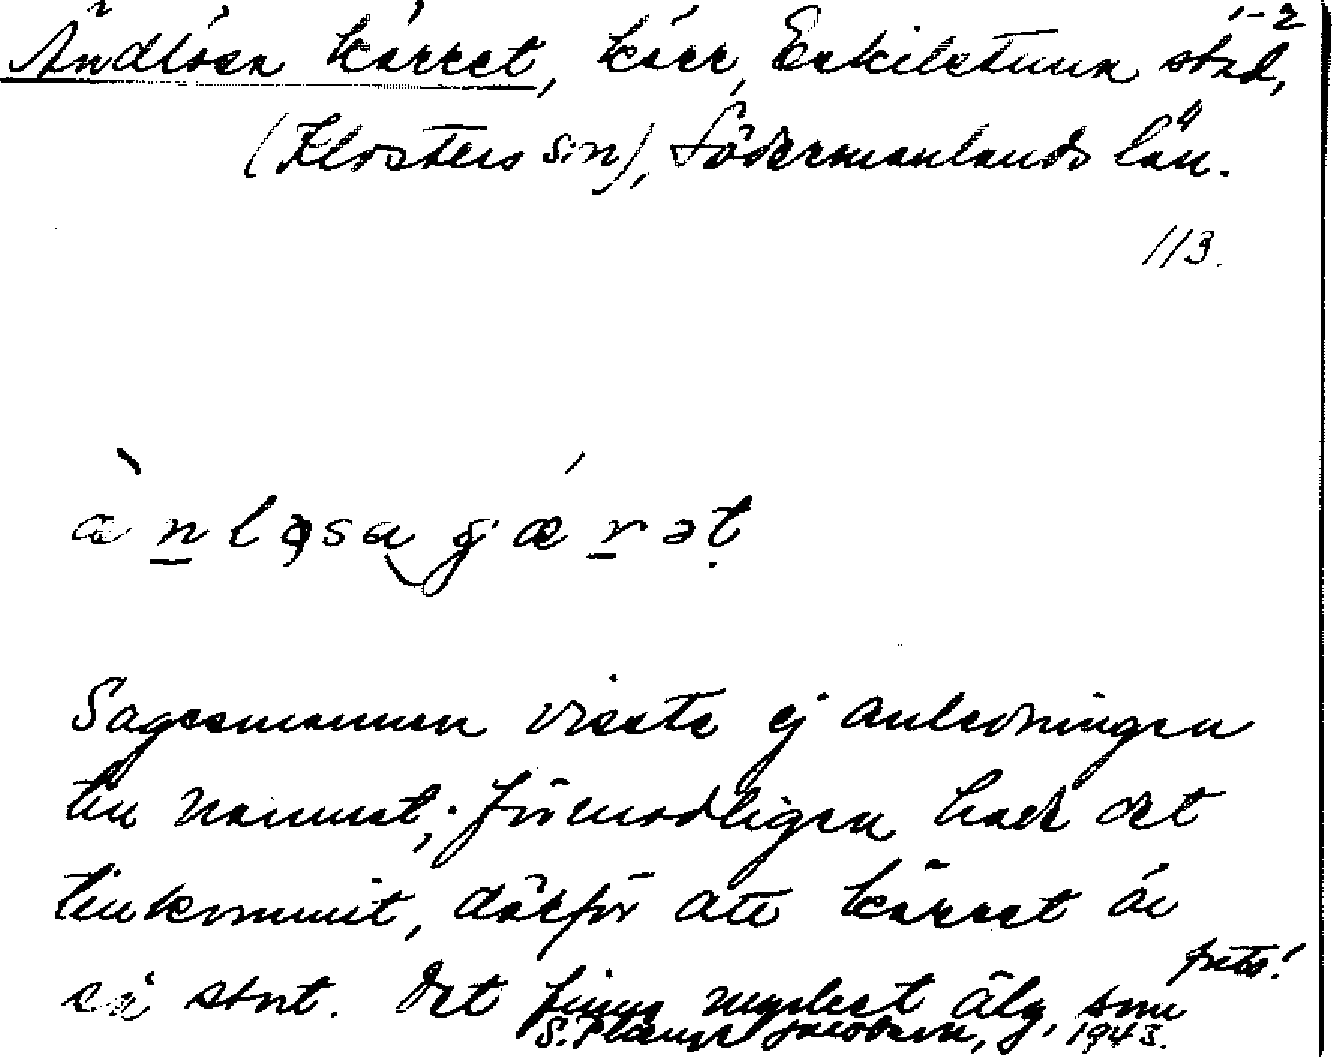 1-2
Ändlösa kärret, kärr, Eskilstuna stad,
(Klosters sn), Södermanlands län.
113.
æ̀nløsa gǽrət
Sagesmannen visste ej anledningen
till namnet; förmodligen hade det
tillkommit, därför att kärret är
så stort. Det finns mycket älg, som
forts!
S. 1943.